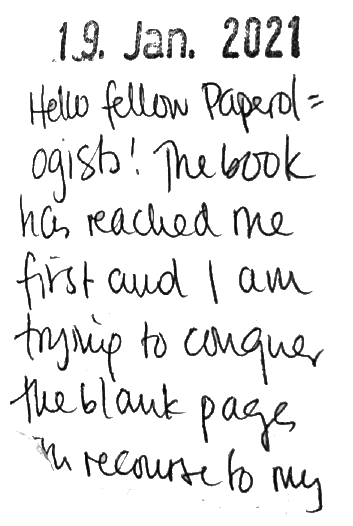 19. Jan. 2021
Hello fellow Paperol=
ogists! The book
has reached me
first and I am
trying to conquer
the blank pages
in recourse to my